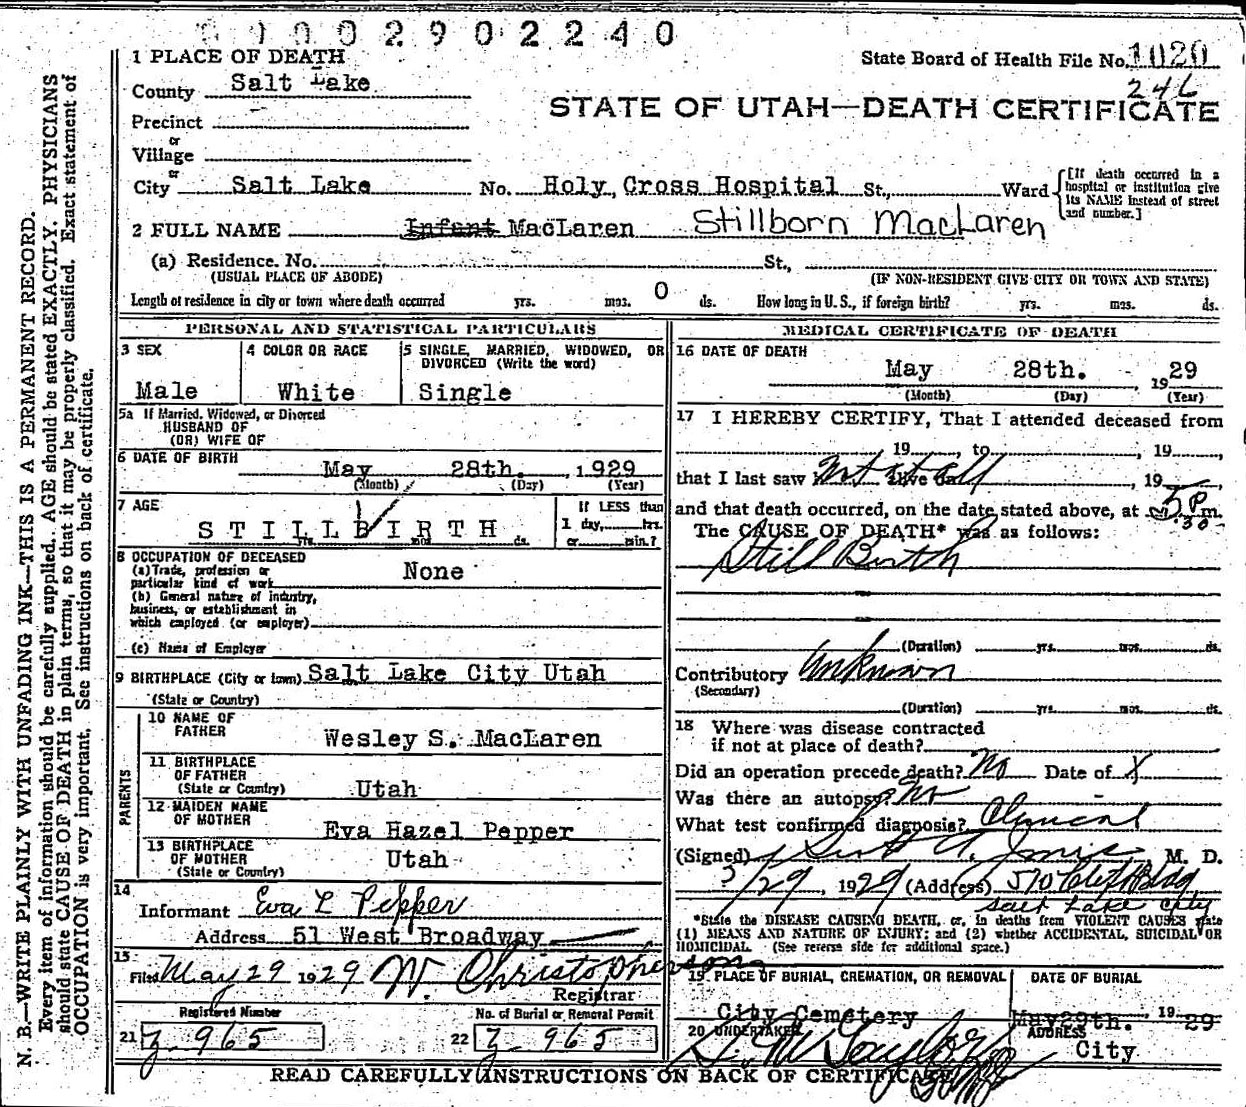 00002902240
1 PLACE OF DEATH
State Board of Health File No. 1020
County Salt Lake
246
STATE OF UTAH—DEATH CERTIFICATE
Precinct
or
Village
or
City Salt Lake No. Holy Cross Hospital St., Ward [If death occurred in a hospital or institution give its NAME instead of street and number.]
2 FULL NAME Infant MacLaren Stillborn MacLaren
(a) Residence. No. St.,
(USUAL PLACE OF ABODE) (IF NON-RESIDENT GIVE CITY OR TOWN AND STATE)
Length of residence in city or town where death occurred yrs. mos. 0 ds. How long in U. S., if foreign birth? yrs. mos. ds.
PERSONAL AND STATISTICAL PARTICULARS
3 SEX
Male
4 COLOR OR RACE
White
5 SINGLE, MARRIED, WIDOWED, OR
DIVORCED (Write the word)
Single
5a If Married, Widowed, or Divorced
HUSBAND OF
(OR) WIFE OF
6 DATE OF BIRTH May 28th. 1929
(Month) (Day) (Year)
7 AGE
STILLBIRTH
yrs. mos. ds.
If LESS than
1 day, hrs.
or min.?
8 OCCUPATION OF DECEASED
(a) Trade, profession or
particular kind of work None
(b) General nature of industry,
business, or establishment in
which employed (or employer)
(c) Name of Employer
9 BIRTHPLACE (City or town) Salt Lake City Utah
(State or Country)
PARENTS
10 NAME OF
FATHER Wesley S. MacLaren
11 BIRTHPLACE
OF FATHER
(State or Country) Utah
12 MAIDEN NAME
OF MOTHER Eva Hazel Pepper
13 BIRTHPLACE
OF MOTHER Utah
(State or Country)
14
Informant Eva L Pepper
Address 51 West Broadway
15
Filed May 29 1929 W. Christopherson
Registrar
Registered Number
21 Z-965
No. of Burial or Removal Permit
22 Z-965
MEDICAL CERTIFICATE OF DEATH
16 DATE OF DEATH
May 28th. 1929
(Month) (Day) (Year)
17 I HEREBY CERTIFY, That I attended deceased from
19 , to , 19
that I last saw Not at all alive on , 19
and that death occurred, on the date stated above, at 5 P m.
.30
The CAUSE OF DEATH* was as follows:
Still Birth
(Duration) yrs. mos. ds.
Contributory Unknown
(Secondary)
(Duration) yrs. mos. ds.
18 Where was disease contracted
if not at place of death?
Did an operation precede death? No Date of X
Was there an autopsy? No
What test confirmed diagnosis? Clinical
(Signed) M. D.
5/29, 1929 (Address) 510 Clift Bldg
Salt Lake City
*State the DISEASE CAUSING DEATH, or, in deaths from VIOLENT CAUSES state
(1) MEANS AND NATURE OF INJURY; and (2) whether ACCIDENTAL, SUICIDAL OR
HOMICIDAL. (See reverse side for additional space.)
19 PLACE OF BURIAL, CREMATION, OR REMOVAL
City Cemetery
DATE OF BURIAL
May 29th. 1929
20 UNDERTAKER
ADDRESS
City
READ CAREFULLY INSTRUCTIONS ON BACK OF CERTIFICATE
N. B.—WRITE PLAINLY WITH UNFADING INK—THIS IS A PERMANENT RECORD.
Every item of information should be carefully supplied. AGE should be stated EXACTLY. PHYSICIANS
should state CAUSE OF DEATH in plain terms, so that it may be properly classified. Exact statement of
OCCUPATION is very important. See instructions on back of certificate.